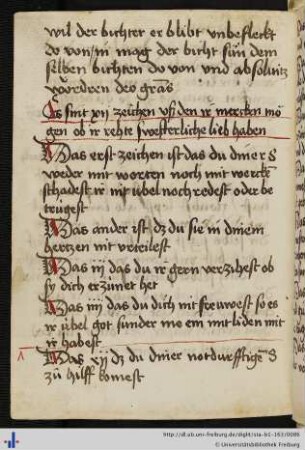 wil der bichter er blibt unbefleckt
do von / in mag der bicht sun dem
selben bichten do von und absolvitz
vordren deo gras
Es sint xij zeichen uß den ir mercken mö
gen ob ir reht swesterliche lieb haben
Das erst zeichen ist das du diner S
weder mit worten noch mit wercke
schadest ir nit übel noch redest oder be
triegest
Das ander ist dz du sie in dinem
hertzen nit urteilest
Das iij das du ir gern verzihest ob
sy dich erzürnet het
Das iiij das du dich nit freuwest so es
ir übel got sunder me ein mitliden mit
ir habest
Das xij dz du diner notdurfftigē S
zü hilff komest
http://dl.ub.uni-freiburg.de/diglit/sta-b1-163/0086
© Universitätsbibliothek Freiburg